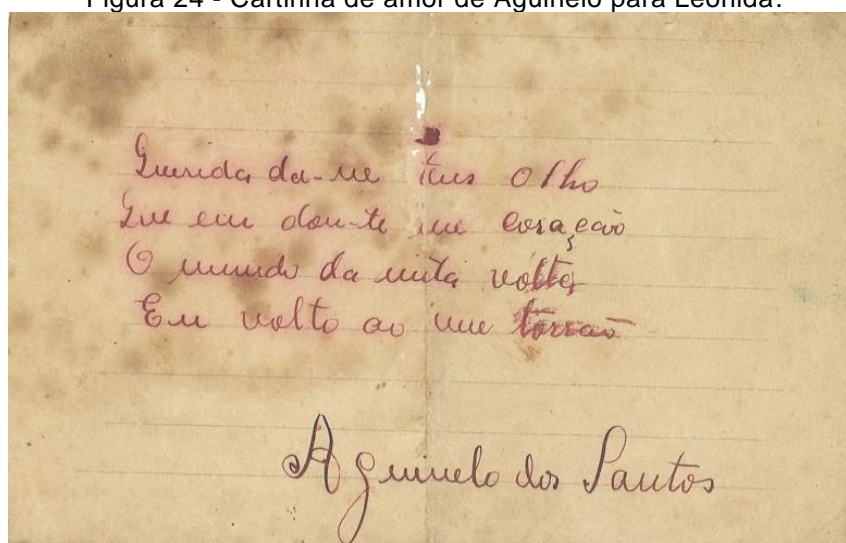 Figura 24 - Cartinha de amor de Aguinelo para Leonida.
Querida da-me teus olho
Que eu dou-te meu coração
O mundo da muita volta
Eu volto ao meu torrão
Aguinelo dos Santos